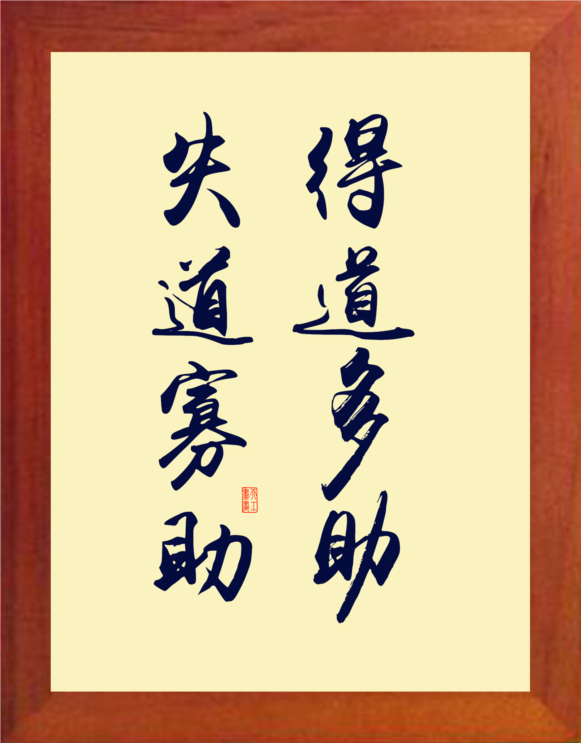 得道多助
失道寡助